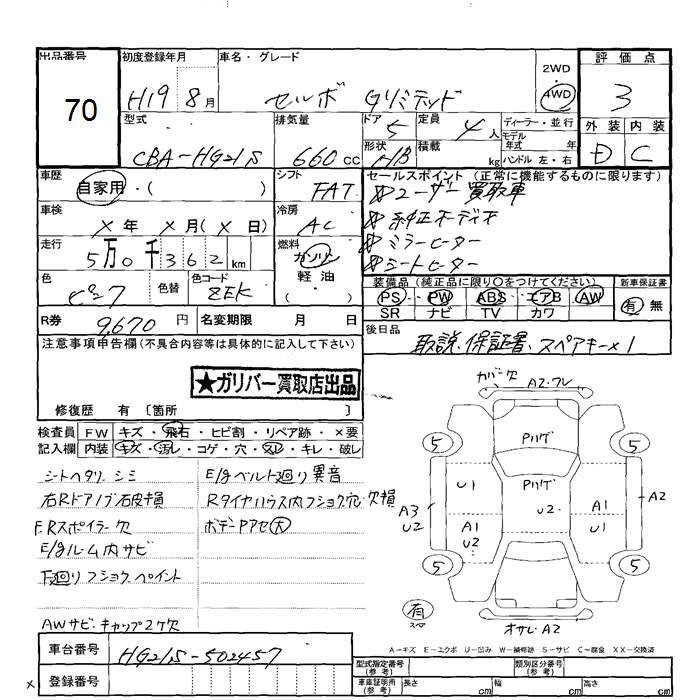 出品番号 初度登録年月 車名・グレード 2WD 評価点
70 H19 8月 セルボ Gリミテッド 4WD 3
型式 排気量 ドア 定員 ディーラー・並行 外装 内装
CBA-HG21S 660cc 5 4人 モデル年式 年式 D C
形状 H/B 積載 kg ハンドル 左・右
車歴 自家用・( ) シフト FAT セールスポイント (正常に機能するものに限ります)
ユーザー買取車
車検 × 年 × 月(× 日) 冷房 AC 純正オーディオ
ミラーヒーター
走行 5万0千362km 燃料 ガソリン 軽油 シートヒーター
色 色替 色コード ZEK 装備品 (純正品に限り○をつけてください) 新車保証書
PS PW ABS エアB AW 有 無
SR ナビ TV カワ
R券 9,670円 名変期限 月 日 後日品
取説.保証書.スペアキー×1
注意事項申告欄(不具合内容等は具体的に記入して下さい)
★ガリバー買取店出品
修復歴 有 〔箇所 〕
検査員 FW キズ・飛石・ヒビ割・リペア跡・×要
記入欄 内装 キズ・汚レ・コゲ・穴・スレ・キレ・破レ
シートヘタリ.シミ E/gベルト廻り異音
右Rドアノブ破損 Rタイヤハウス内フショク穴.欠損
F.Rスポイラー欠 ボデーPアセ大
E/gルーム内サビ
下廻りフショク.ペイント
AWサビ.キャップ2ケ欠
カバー欠 A2.ワレ
5 Pハゲ 5
U1 Pハゲ
A3 U2 A1 U2 U2 A1 U1 A2
5 5
有 スペ オサレ.A2
A-キズ E-エクボ U-凹み W-補修跡 S-サビ C-腐食 XX-交換済
車台番号 HG21S-502457 型式指定番号(参考) 類別区分番号(参考)
登録番号 車庫証明用(参考) 長さ cm 幅 cm 高さ cm
×